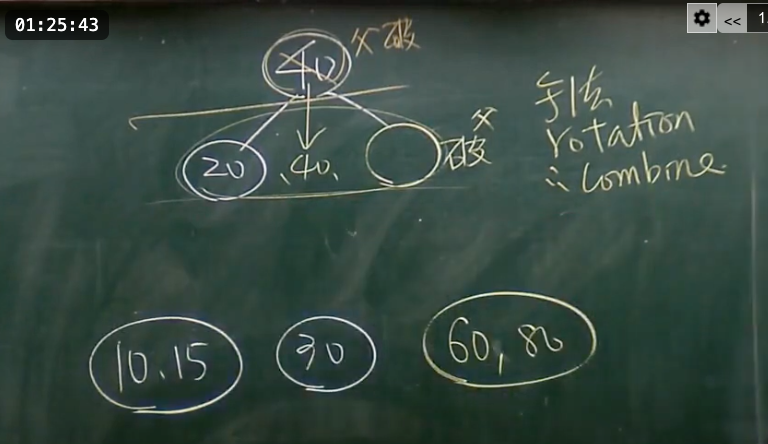 01:25:43
<<
40
破
20
40
破
rotation
∴ combine
10、15
30
60, 80